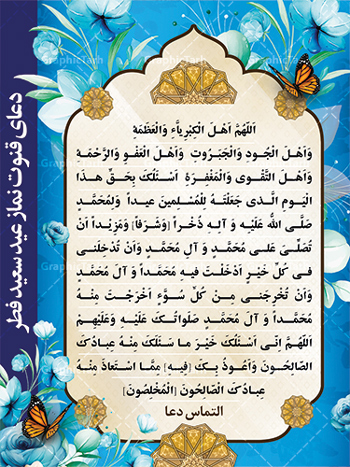 دعای قنوت نماز عید سعید فطر
اَللّهُمَّ اَهْلَ الْکِبْرِیاَّءِ وَالْعَظَمَةِ
وَاَهْلَ الْجُودِ وَالْجَبَرُوتِ وَاَهْلَ الْعَفْوِ وَالرَّحْمَةِ
وَاَهْلَ التَّقْوی وَالْمَغْفِرَةِ اَسْئَلُکَ بِحَقِّ هذَا
الْیَومِ الَّذی جَعَلْتَهُ لِلْمُسْلِمینَ عیداً وَلِمُحَمَّدٍ
صَلَّی اللهُ عَلَیْهِ وَ آلِهِ ذُخْراً [وَشَرَفاً] وَمَزِیْداً اَنْ
تُصَلِّیَ عَلی مُحَمَّدٍ وَ آلِ مُحَمَّدٍ وَاَنْ تُدْخِلَنی
فی کُلِّ خَیْرٍ اَدْخَلْتَ فیهِ مُحَمَّداً وَ آلَ مُحَمَّدٍ
وَاَنْ تُخْرِجَنی مِنْ کُلِّ سُوَّءٍ اَخْرَجْتَ مِنْهُ
مُحَمَّداً وَ آلَ مُحَمَّدٍ صَلَواتُکَ عَلَیْهِ وَعَلَیْهِمْ
اَللّهُمَّ اِنّی اَسْئَلُکَ خَیْرَ ما سَئَلَکَ مِنْهُ عِبادُکَ
الصّالِحُونَ وَاَعُوذُ بِکَ [فیهِ] مِمَّا اسْتَعاذَ مِنْهُ
عِبادُکَ الصّالِحُونَ [الْمُخْلَصُونَ]
التماس دعا
GraphicTarh